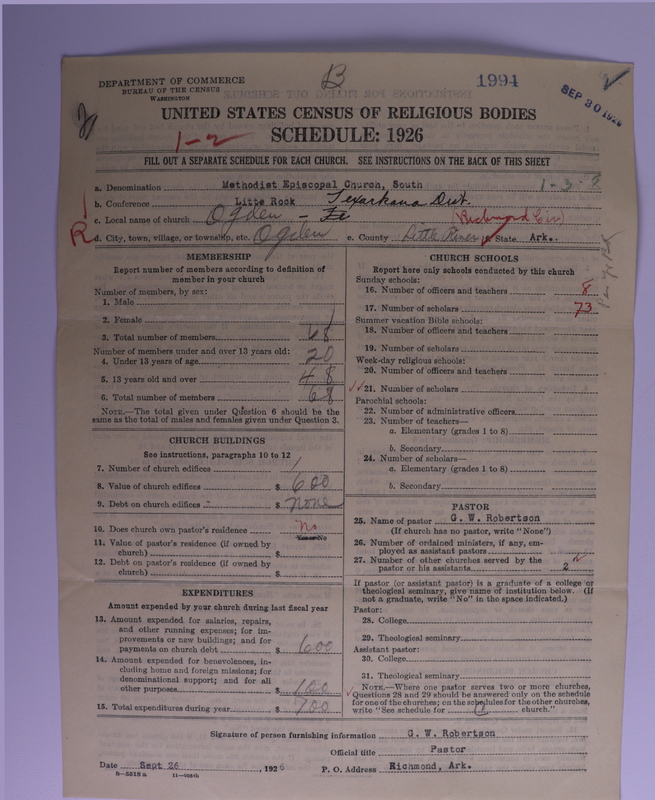 B
1994
SEP 30 1926
DEPARTMENT OF COMMERCE
BUREAU OF THE CENSUS
WASHINGTON
UNITED STATES CENSUS OF RELIGIOUS BODIES
1-2
SCHEDULE: 1926
FILL OUT A SEPARATE SCHEDULE FOR EACH CHURCH. SEE INSTRUCTIONS ON THE BACK OF THIS SHEET
a. Denomination Methodist Episcopal Church, South 1-3-
b. Conference Little Rock Texarkana Dist.
c. Local name of church Ogden (Richmond Cir)
R
d. City, town, village, or township, etc. Ogden e. County Little River f. State Ark.
MEMBERSHIP
Report number of members according to definition of
member in your church
Number of members, by sex:
1. Male
2. Female
3. Total number of members 68
Number of members under and over 13 years old:
4. Under 13 years of age 20
5. 13 years old and over 48
6. Total number of members 68
NOTE.—The total given under Question 6 should be the
same as the total of males and females given under Question 3.
CHURCH BUILDINGS
See instructions, paragraphs 10 to 12
7. Number of church edifices 1
8. Value of church edifices $ 600
9. Debt on church edifices $ none
10. Does church own pastor's residence No
Yes or No
11. Value of pastor's residence (if owned by
church) $
12. Debt on pastor's residence (if owned by
church) $
EXPENDITURES
Amount expended by your church during last fiscal year
13. Amount expended for salaries, repairs,
and other running expenses; for im-
provements or new buildings; and for
payments on church debt $ 600
14. Amount expended for benevolences, in-
cluding home and foreign missions; for
denominational support; and for all
other purposes $ 100
15. Total expenditures during year $ 700
CHURCH SCHOOLS
Report here only schools conducted by this church
Sunday schools:
16. Number of officers and teachers 8
17. Number of scholars 73
Summer vacation Bible schools:
18. Number of officers and teachers
19. Number of scholars
Week-day religious schools:
20. Number of officers and teachers
21. Number of scholars
Parochial schools:
22. Number of administrative officers
23. Number of teachers—
a. Elementary (grades 1 to 8)
b. Secondary
24. Number of scholars—
a. Elementary (grades 1 to 8)
b. Secondary
PASTOR
25. Name of pastor G. W. Robertson
(If church has no pastor, write "None")
26. Number of ordained ministers, if any, em-
ployed as assistant pastors
27. Number of other churches served by the
pastor or his assistants 2
If pastor (or assistant pastor) is a graduate of a college or
theological seminary, give name of institution below. (If
not a graduate, write "No" in the space indicated.)
Pastor:
28. College
29. Theological seminary
Assistant pastor:
30. College
31. Theological seminary
NOTE.—Where one pastor serves two or more churches,
Questions 28 and 29 should be answered only on the schedule
for one of the churches; on the schedules for the other churches,
write "See schedule for church."
Signature of person furnishing information G. W. Robertson
Official title Pastor
Date Sept 26, 1926 P. O. Address Richmond, Ark.